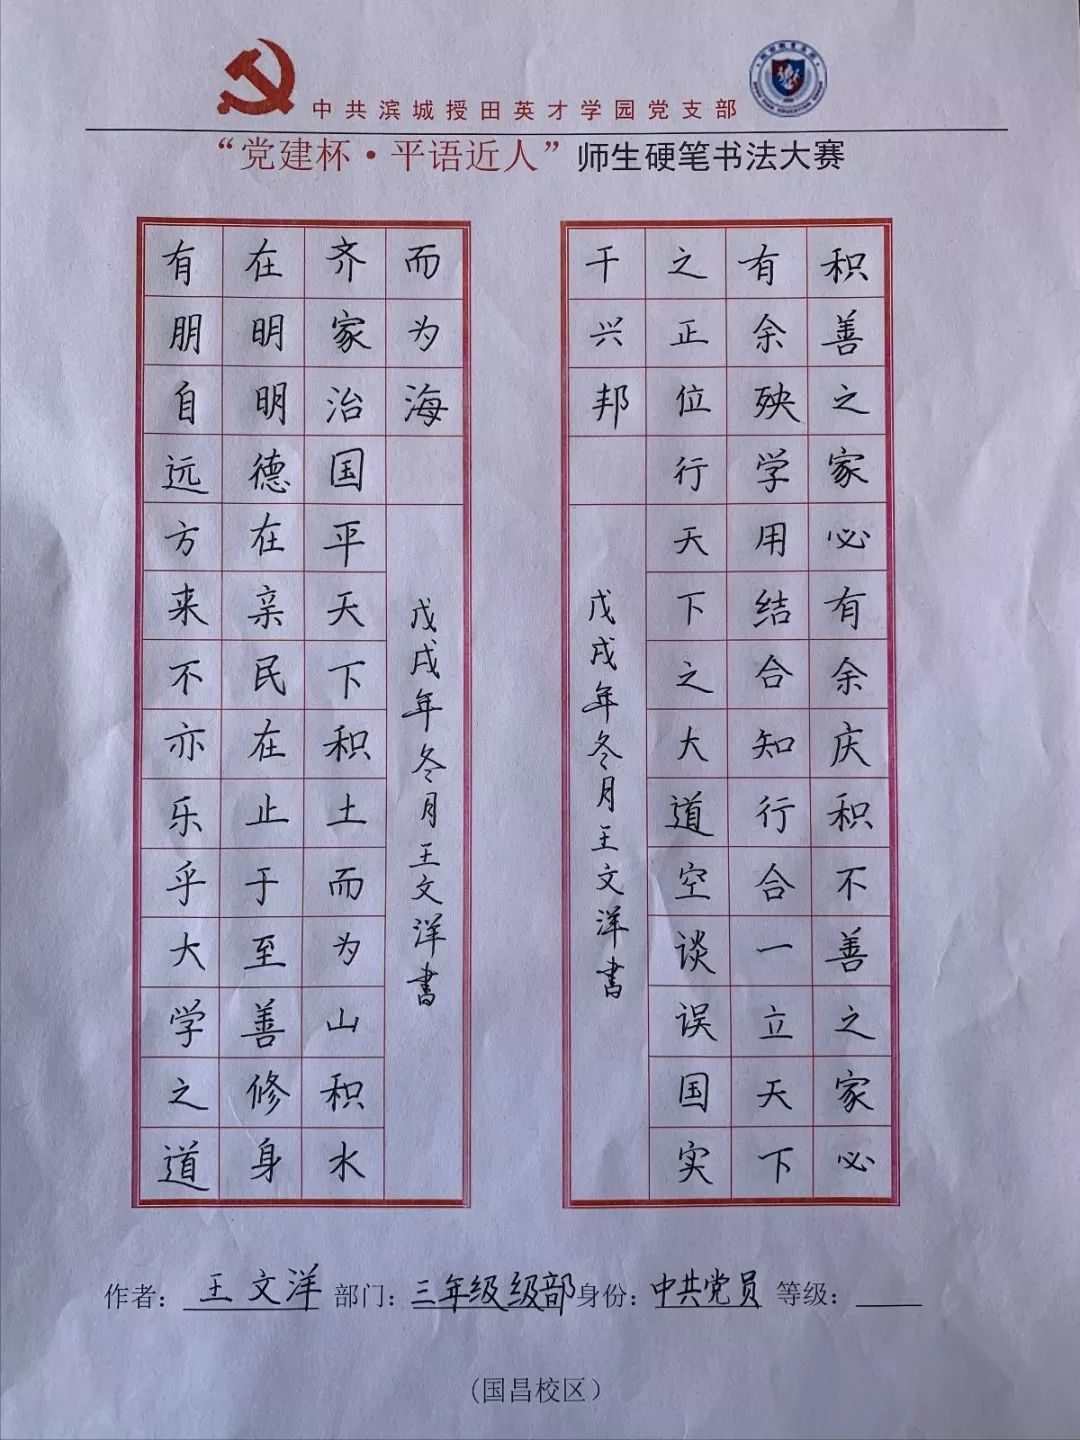 中共滨城授田英才学园党支部
“党建杯·平语近人”师生硬笔书法大赛
有朋自远方来不亦乐乎大学之道
在明明德在亲民在止于至善修身
齐家治国平天下积土而为山积水
而为海
戊戌年冬月王文洋書
积善之家必有余庆积不善之家必
有余殃学用结合知行合一立天下
之正位行天下之大道空谈误国实
干兴邦
戊戌年冬月王文洋書
作者：王文洋 部门：三年级级部 身份：中共党员 等级：
（国昌校区）